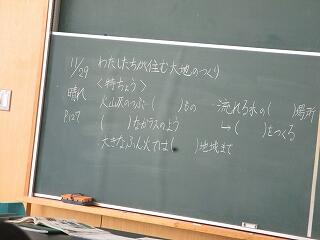 11/29 わたしたちが住む大地のつくり
晴れ 〈特ちょう〉
P.127 火山灰のつぶ…( )もの
( )なガラスのよう
大きなふん火では( )地域まで
流れる水の( )場所
↳( )をつくる